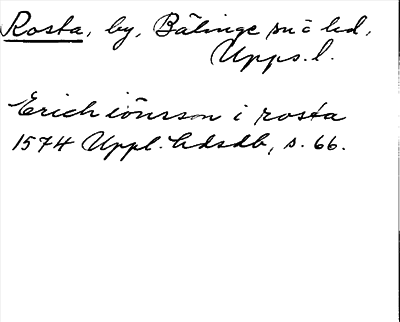 Rosta, by, Bälinge sn o hd,
Upps. l.
Erich iönsson i rosta
1574 Uppl. hdsdb, s. 66.